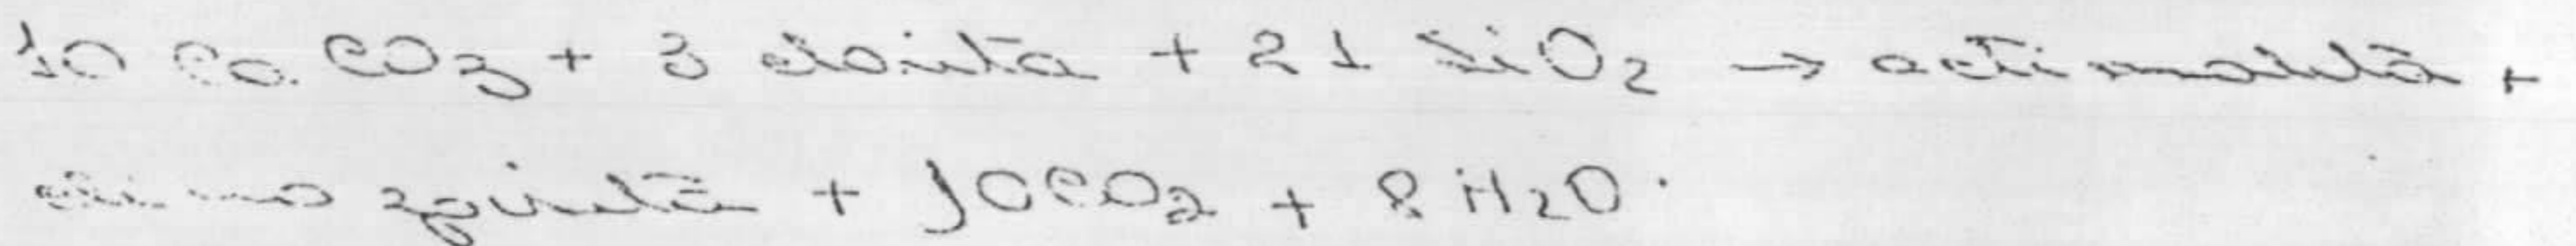 10 CaCO3 + 3 clorita + 21 SiO2 → actinolita +
clinozoisita + 10CO2 + 8 H2O.